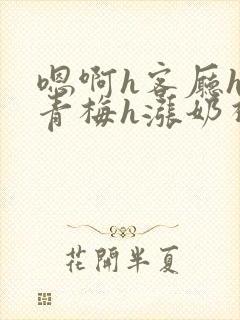 嗯啊h客廳h
青梅h漲奶
花開半夏